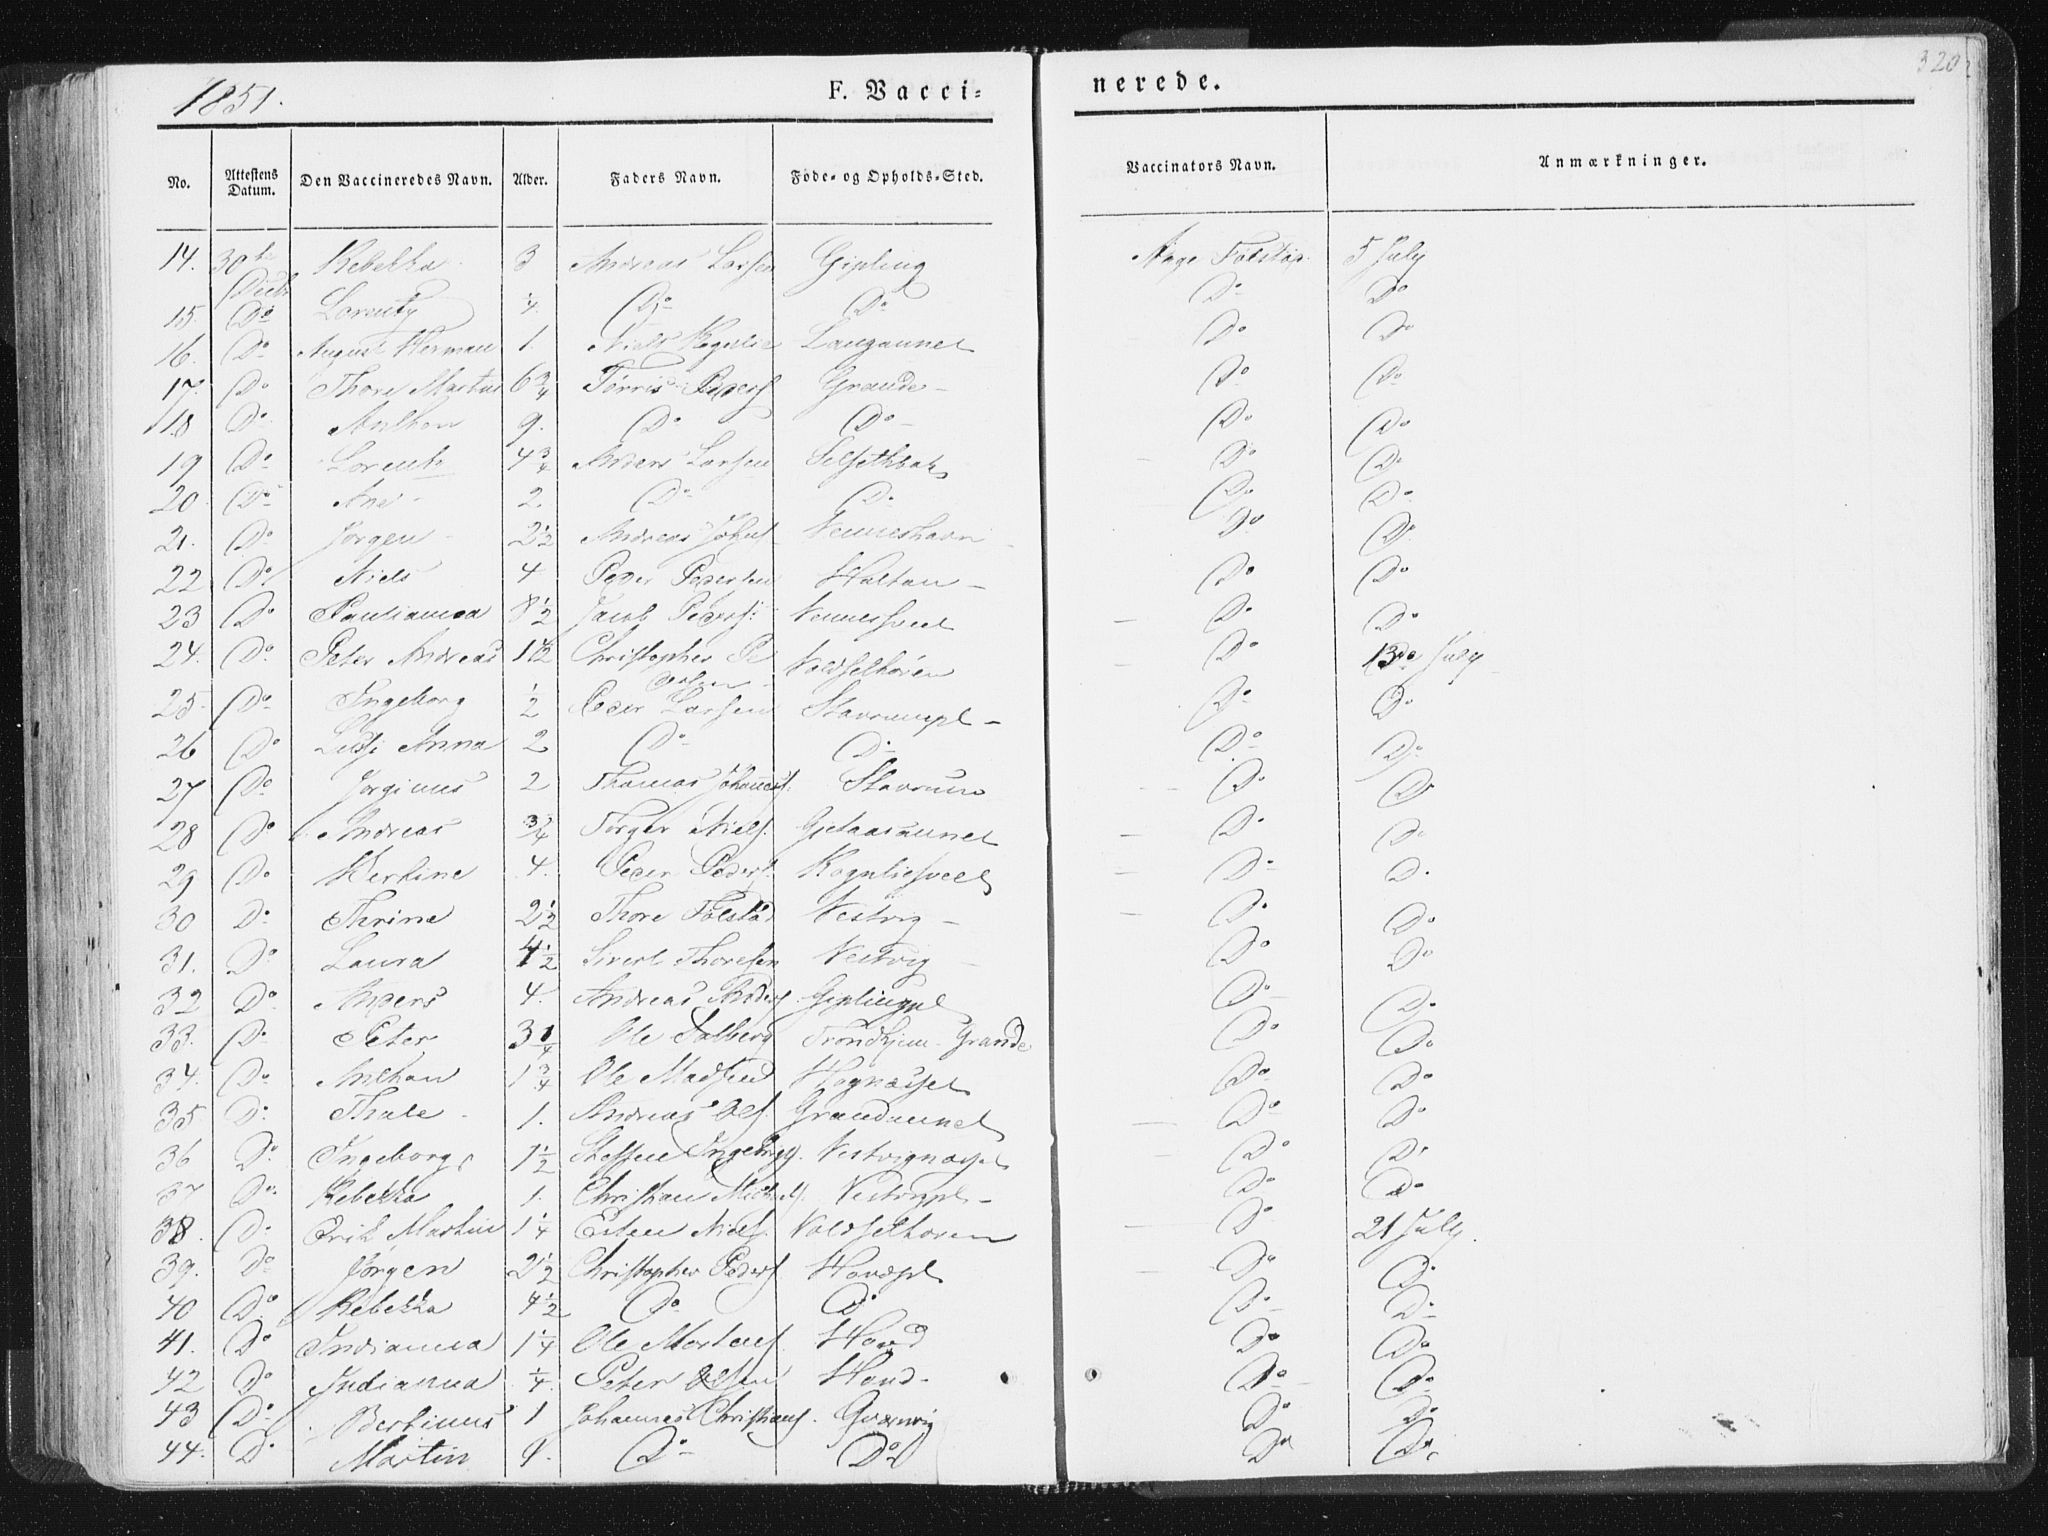 320
1851.
F. Vacci-
nerede.
No. Attestens Datum. Den Vaccineredes Navn. Alder. Faders Navn. Føde- og Opholds-Sted. Vaccinators Navn. Anmærkninger.
14. 30te Rebekka 3 Andreas Larsen Gipling Aage Følstap 5 July
15. Do Lorents ¼ Do Do Do Do
16. Do August Herman 1. Niels Rognlie Do Do
17. Do Thore Martus 6¾ Tørris Peders Grande Do Do
18 Do Anthon 9. Do Do Do Do
19 Do Lorents 4¾ Anders Larsen Selsethbak Do Do
20 Do Ane 2. Do Do Do Do
21. Do Jørgen 2½ Andreas Johns Nemneshavn Do Do
22 Do Niels 4 Peder Pedersen Holtan Do Do
23 Do Paulianna 8½ Jacob Peders: Do Do
24. Do Peter Andreas 1½ Christopher Pe dersen Voldselhøren Do 13de July
25. Do Ingeborg ½ Peder Larsen Stavrumpl Do Do
26 Do Anna 2 Do Do Do Do
27 Do Jørginus 2 Thomas Johanness. Stavrum Do Do
28 Do Andreas ¾ Torger Niels. Gjetaasaunet Do Do
29 Do Bertine 4. Peder Peders. Rognlieshveel Do D.
30 Do Thrine 2½ Thore Følstad Vestvig Do Do
31. Do Laura 4½ Sivert Thoresen Vestvig Do Do
32 Do Anders 4. Andreas Anders. Giplingpl Do Do
33. Do Peter 3¼ Ole Solberg Trondhjem - Grande Do Do
34. Do Anthon 1¾ Ole Madsen Hognæsset Do Do
35. Do Thale 1. Andreas Ols. Grandaunet Do Do
36 Do Ingeborg 1½ Steffen Ingebrigts. Vestvignæsset Do Do
37 Do Rebekka 1. Christian Michaels. Vestvigpl Do Do
38. Do Erik Martin 1¼ Esten Niels. Voldselhøren Do 21 July.
39. Do Jørgen 2½ Christopher Peders Hovdspl Do Do
40 Do Rebekka 4½ Do Do Do Do
41. Do Indianna 1¼ Ole Mortens Hovd Do Do
42 Do Indianna ¼. Peter Olsen Hovd Do Do
43 Do Bertinus 1 Johannes Christians. Grønvig Do Do
44. Do Martin 9. Do Do Do Do